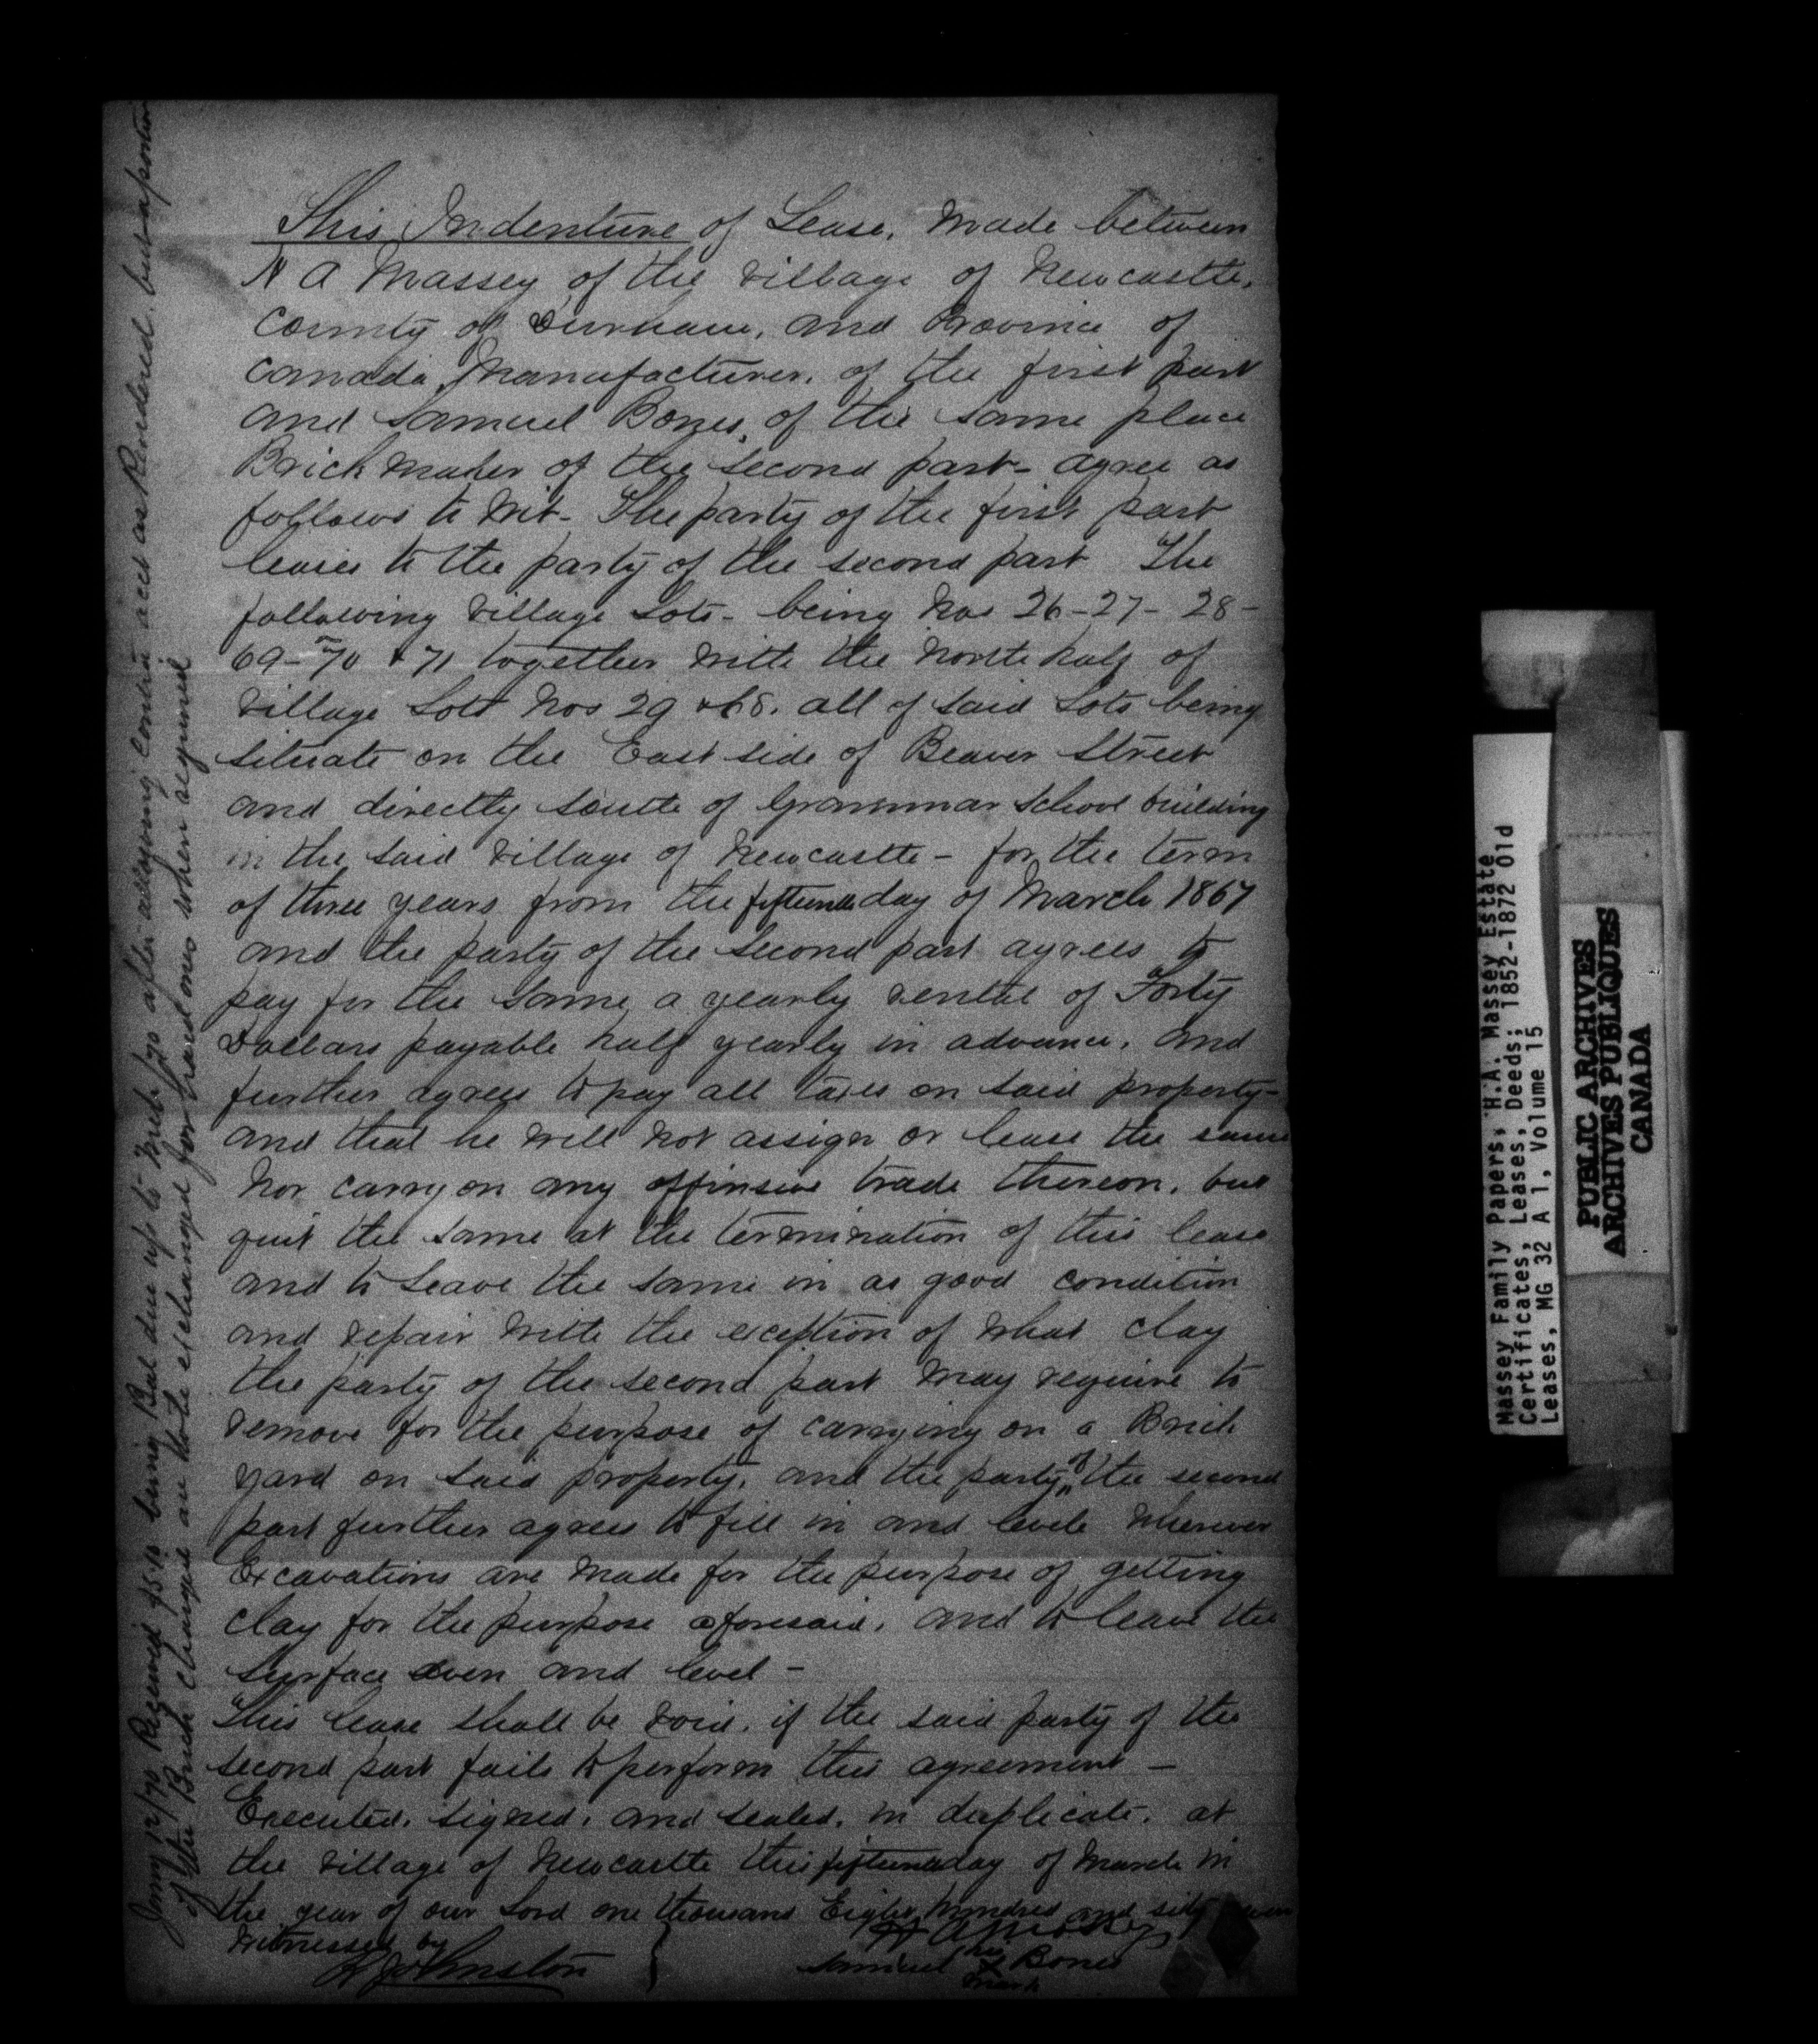 This Indenture of Lease, made between
H A Massey of the village of Newcastle,
County of Durham, and Province of
Canada, Manufacturer, of the first part
and Samuel Bones, of the same place
Brick maker of the second part - agree as
follows to wit - The party of the first part
leases to the party of the second part The
following village Lots - being Nos 26 - 27 - 28 -
69 - 70 & 71 together with the North half of
village Lots Nos 29 & 68. all of said Lots being
situate on the East side of Beaver Street
and directly South of Grammar School building
in the said village of Newcastle - for the term
of three years from the fifteenth day of March 1867
and the party of the second part agrees to
pay for the same a yearly rental of Forty
Dollars payable half yearly in advance, and
further agrees to pay all taxes on said property -
and that he will not assign or lease the same
nor carry on any offensive trade thereon, but
quit the same at the termination of this lease
and to leave the same in as good condition
and repair with the exception of what clay
the party of the second part may require to
remove for the purpose of carrying on a Brick
yard on said property, and the party of the second
part further agrees to fill in and level wherever
Excavations are made for the purpose of getting
clay for the purpose aforesaid, and to leave the
surface even and level -
This lease shall be void, if the said party of the
second part fails to perform this agreement -
Executed, signed, and sealed, in duplicate, at
the village of Newcastle this fifteenth day of March in
the year of our Lord one thousand Eight hundred and sixty seven
Witnessed by
Johnston
H A Massey
Samuel his X mark Bones
Jany 12/70 Received $5.10 being Bal due up to Mch/70 after allowing contra acct as Rendered, but a portion
of the Brick charged are to be exchanged for hard ones when required
Massey Family Papers, H.A. Massey Estate
Certificates, Leases, Deeds; 1852-1872 Old
Leases, MG 32 A 1, Volume 15
PUBLIC ARCHIVES
ARCHIVES PUBLIQUES
CANADA